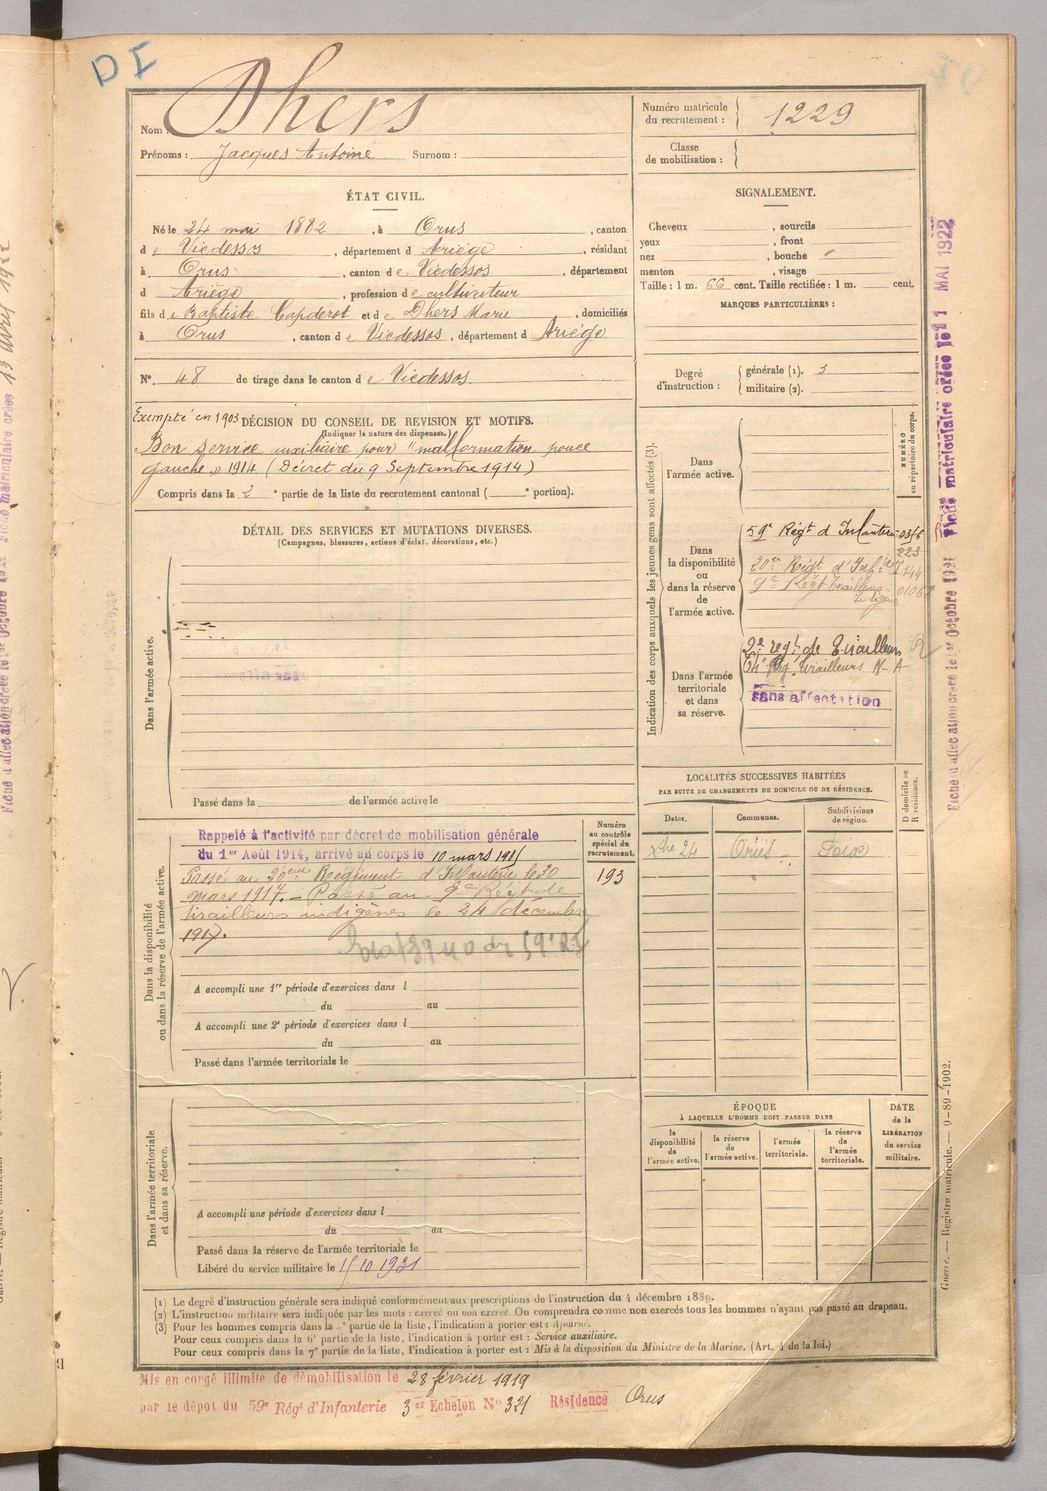 DI
Nom : Dhers
Prénoms : Jacques Antoine Surnom :
Numéro matricule du recrutement : 1229
Classe de mobilisation :
ÉTAT CIVIL.
Né le 24 mai 1882, à Orus, canton
de Vicdessos, département d Ariège, résidant
à Orus, canton de Vicdessos, département
d Ariège, profession de cultivateur
fils de Baptiste Capderot et de Dhers Marie, domiciliés
à Orus, canton de Vicdessos, département d Ariège
N° 48 de tirage dans le canton de Vicdessos
SIGNALEMENT.
Cheveux , sourcils
yeux , front
nez , bouche
menton , visage
Taille : 1 m. 66 cent. Taille rectifiée : 1 m. cent.
MARQUES PARTICULIÈRES :
Degré d'instruction : générale (1). 3
militaire (2).
Exempté en 1903 DÉCISION DU CONSEIL DE REVISION ET MOTIFS.
(Indiquer la nature des dispenses.)
Bon service auxiliaire pour "malformation pouce
gauche" 1914 (Décret du 9 Septembre 1914)
Compris dans la 2e partie de la liste du recrutement cantonal ( e portion).
DÉTAIL DES SERVICES ET MUTATIONS DIVERSES.
(Campagnes, blessures, actions d'éclat, décorations, etc.)
Dans l'armée active.
Passé dans la de l'armée active le
Indication des corps auxquels les jeunes gens sont affectés (3).
NUMÉRO au répertoire du corps.
Dans l'armée active.
Dans la disponibilité ou dans la réserve de l'armée active.
59e Régt d'Infanterie
20e Régt d'Infie
9e Régt Tirailleurs indigènes
Dans l'armée territoriale et dans sa réserve.
2e régt de Tirailleurs
Rég. Tirailleurs N-A
sans affectation
LOCALITÉS SUCCESSIVES HABITÉES
PAR SUITE DE CHANGEMENTS DE DOMICILE OU DE RÉSIDENCE.
Dates. Communes. Subdivisions de région. D domicile ou R résidence.
Xbre 24 Orus Foix
Dans la disponibilité ou dans la réserve de l'armée active.
Numéro au contrôle spécial du recrutement.
193
Rappelé à l'activité par décret de mobilisation générale
du 1er Août 1914, arrivé au corps le 10 mars 1915
Passé au 20eme Régiment d'Infanterie le 30
mars 1917. - Passé au 9e Régt de
tirailleurs indigènes le 24 décembre
1917.
A accompli une 1re période d'exercices dans l
du au
A accompli une 2e période d'exercices dans l
du au
Passé dans l'armée territoriale le
Dans l'armée territoriale et dans sa réserve.
A accompli une période d'exercices dans l
du au
Passé dans la réserve de l'armée territoriale le
Libéré du service militaire le 15/10 1931
ÉPOQUE
À LAQUELLE L'HOMME DOIT PASSER DANS
la disponibilité de l'armée active. la réserve de l'armée active. l'armée territoriale. la réserve de l'armée territoriale.
DATE de la LIBÉRATION du service militaire.
(1) Le degré d'instruction générale sera indiqué conformément aux prescriptions de l'instruction du 4 décembre 1889.
(2) L'instruction militaire sera indiquée par les mots : exercé ou non exercé. On comprendra comme non exercés tous les hommes n'ayant pas passé au drapeau.
(3) Pour les hommes compris dans la partie de la liste, l'indication à porter est : Ajourné.
Pour ceux compris dans la 6e partie de la liste, l'indication à porter est : Service auxiliaire.
Pour ceux compris dans la 7e partie de la liste, l'indication à porter est : Mis à la disposition du Ministre de la Marine. (Art. 4 de la loi.)
Mis en congé illimité de démobilisation le 28 février 1919
par le dépôt du 59e Régt d'Infanterie 3er Echelon N° 321 Résidence Orus
Fiche matriculaire créée le 11 MAI 1922
Fiche d'affectation créée le 1er Octobre 1921
Guerre. — Registre matricule. — 9-89-1902.